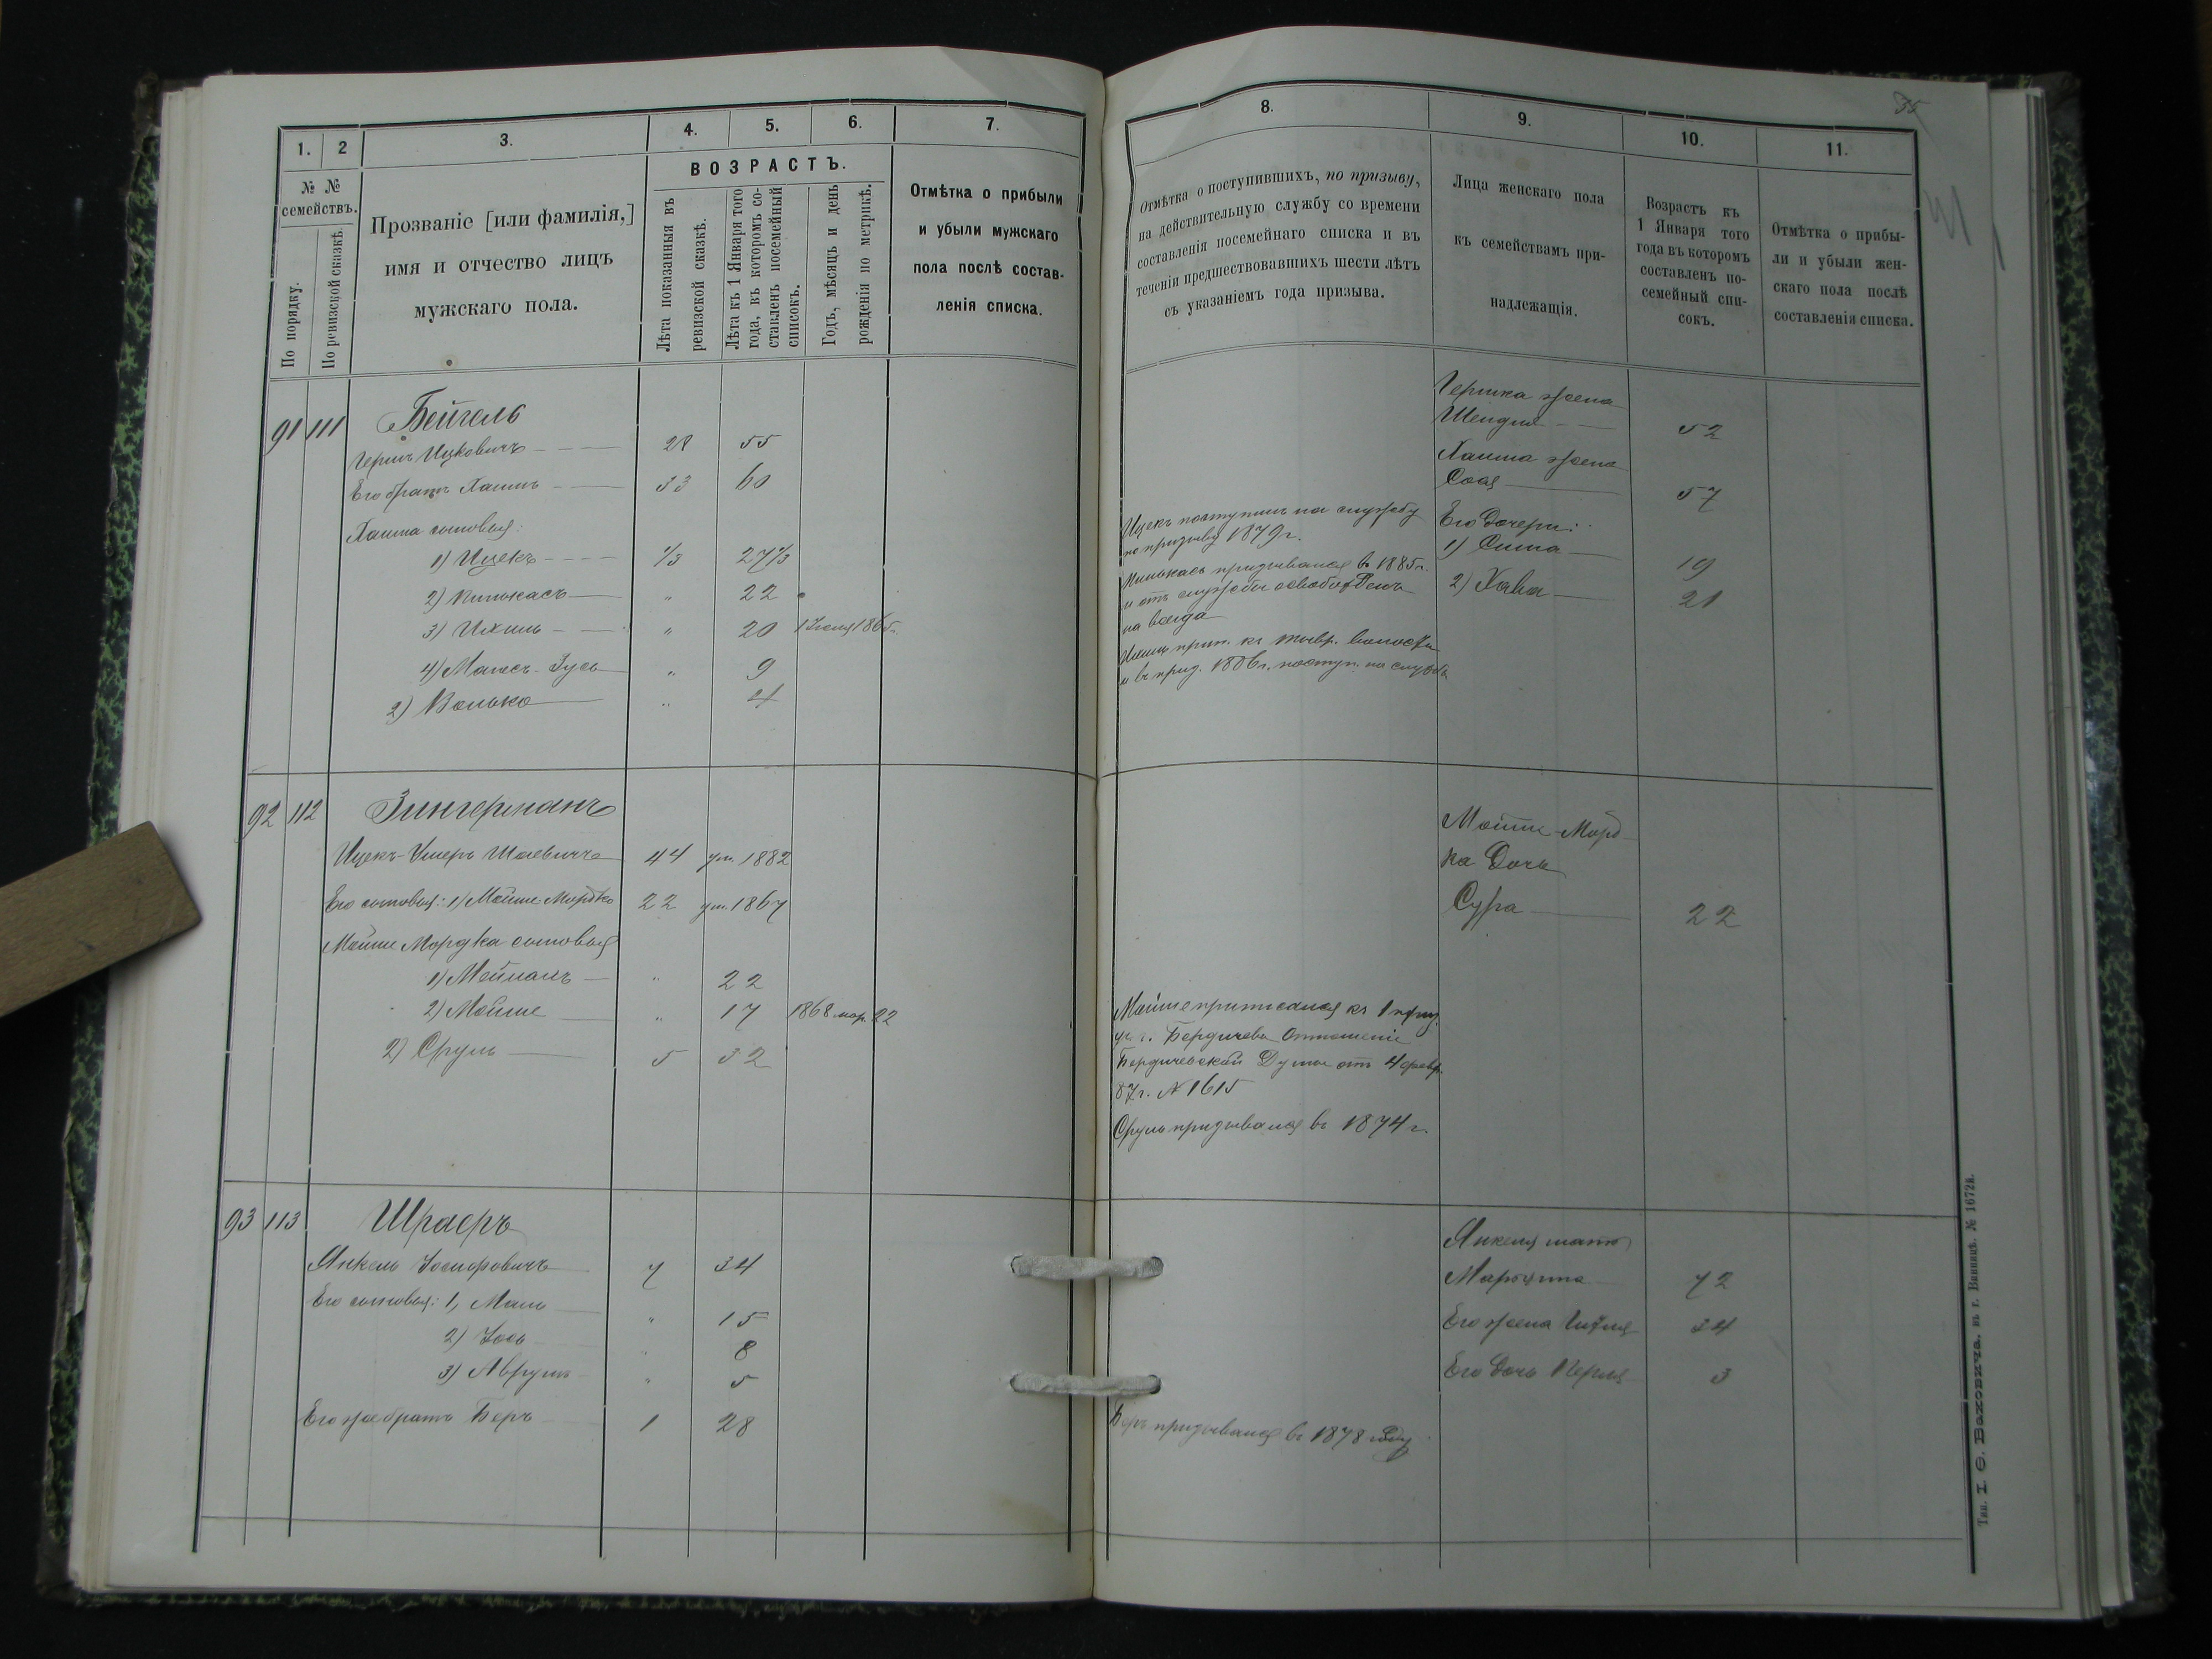 1.
2
3.
4.
5.
6.
7.
№ №
семействъ.
По порядку.
По ревизской сказкѣ
Прозваніе [или фамилія,]
имя и отчество лицъ
мужскаго пола.
ВОЗРАСТЪ.
Лѣта показанныя въ
ревизской сказкѣ.
Лѣта къ 1 Января того
года, въ которомъ со-
ставленъ посемейный
списокъ.
Годъ, мѣсяцъ и день
рожденія по метрикѣ.
Отмѣтка о прибыли
и убыли мужскаго
пола послѣ состав-
ленія списка.
91 111 Бейгель
Гершъ Ицковичъ 28 55
Его братъ Хаимъ 33 60
Хаима сыновья:
1) Ицекъ 1/3 27 1/3
2) Пинькасъ " 22
3) Ихиль " 20 1865г.
4) Мамсъ-Зусь " 9
2) Волько " 4
92 112 Зингерманъ
Ицекъ-Ушеръ Шаевичъ 44 ум. 1882
Его сыновья: 1) Мойше-Мордко 22 ум. 1867
Мойше Мордка сыновья
1) Нейманъ " 22
2) Мойше " 17 1868 мар. 22
2) Сруль 5 32
93 113 Шраеръ
Янкель Іосифовичъ 7 34
Его сыновья: 1, Маль " 15
2) Іось " 8
3) Аврумъ " 5
Его же братъ Беръ 1 28
35
8.
9.
10.
11.
Отмѣтка о поступившихъ, по призыву,
на действительную службу со времени
составленія посемейнаго списка и въ
теченіи предшествовавшихъ шести лѣтъ
съ указаніемъ года призыва.
Лица женскаго пола
къ семействамъ при-
надлежащія.
Возрастъ къ
1 Января того
года въ которомъ
составленъ по-
семейный спи-
сокъ.
Отмѣтка о прибы-
ли и убыли жен-
скаго пола послѣ
составленія списка.
Гершка жена
Шендля 52
Хаима жена
Сося 57
Ицекъ поступилъ на службу
по призыву 1879г.
Его дочери:
1) Сима 19
2) Хава 21
Пинькасъ призывался въ 1885г.
и отъ службы освобожденъ
на всегда
Ихиль прип. къ Тывр. волости
и въ приз. 1886г. поступ. на службу
Мойше-Морд
ка дочь
Сура 22
Мойше приписался къ 1 приз.
уч. г. Бердичева Отношеніе
Бердичевской Думы отъ 4 февр.
87г. №1615
Сруль призывался въ 1874г.
Янкеля мать
72
Его жена 34
Его дочь Перля 3
Беръ призывался въ 1878 году
Тип. І. Ѳ. Баховича. въ г. Винницѣ. № 1672а.